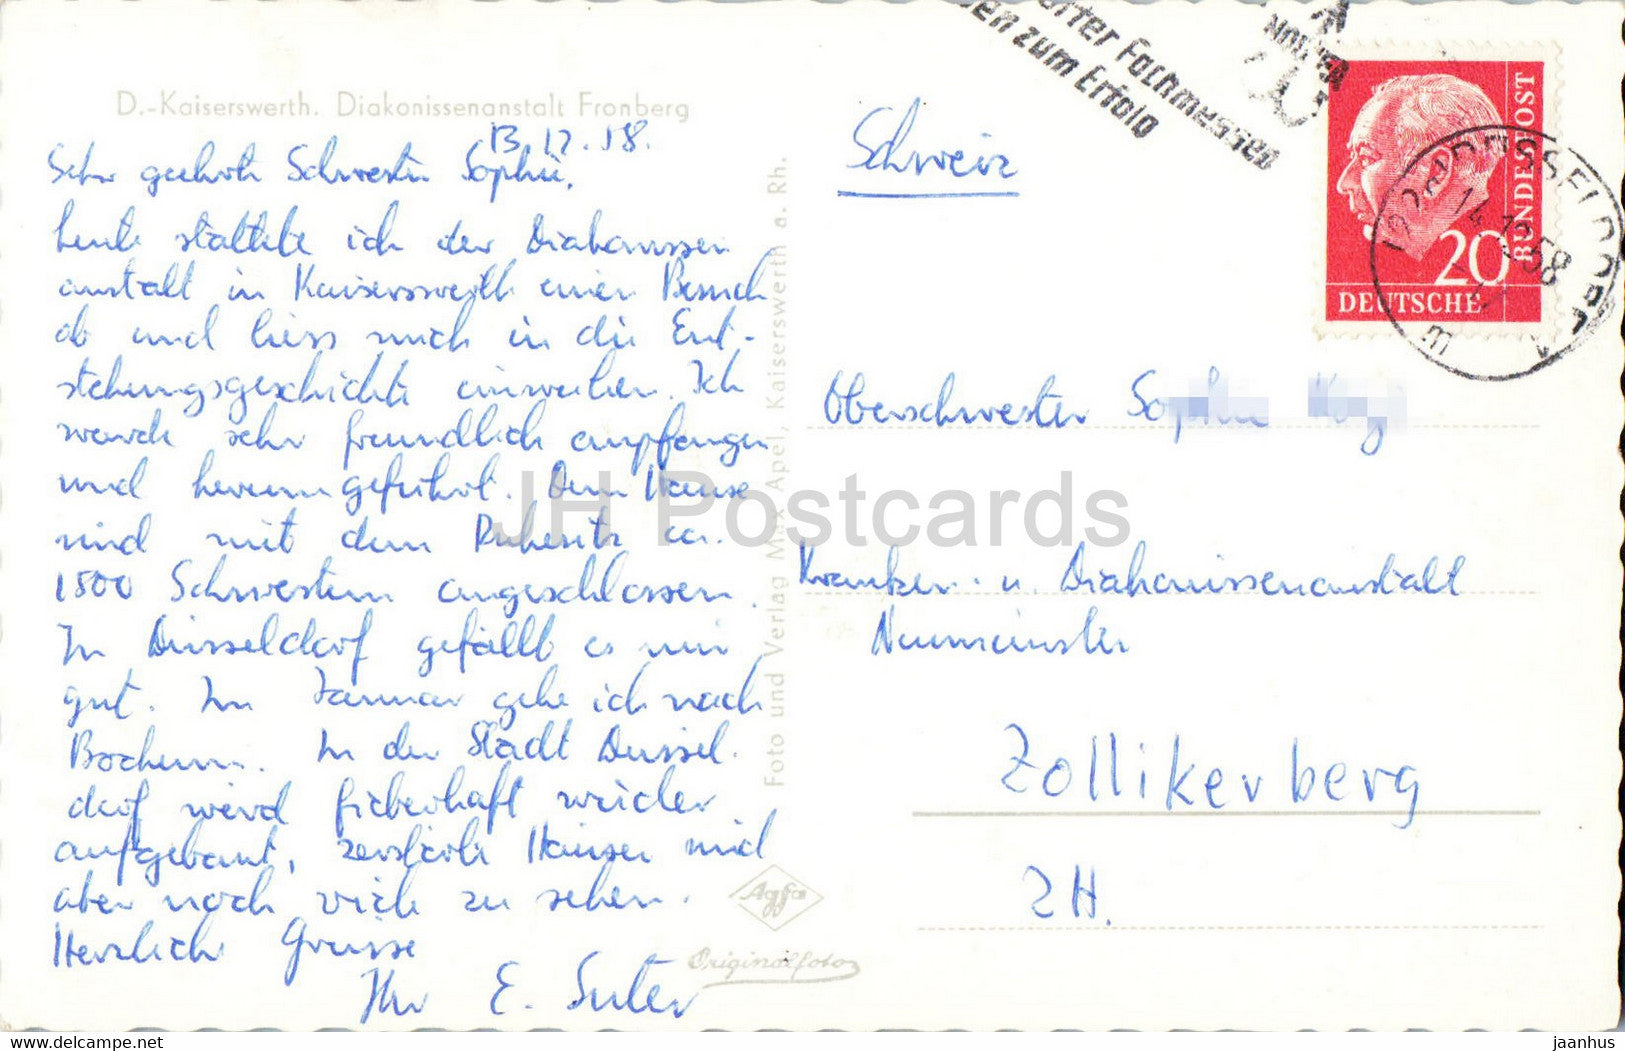 D.-Kaiserswerth. Diakonissenanstalt Fronberg
13.12.58.
Sehr geehrte Schwester Sophie,
heute stattete ich der Diakonissen
anstalt in Kaiserswerth einen Besuch
ab und liess mich in die Ent-
stehungsgeschichte einweihen. Ich
wurde sehr freundlich empfangen
und herumgeführt. Dem Hause
sind mit dem Ruhesitz ca.
1800 Schwestern angeschlossen.
In Düsseldorf gefällt es mir
gut. Im Januar gehe ich nach
Bochum. In der Stadt Düssel-
dorf wird fieberhaft wieder
aufgebaut, zerstörte Häuser sind
aber noch viele zu sehen.
Herzliche Grüsse
Ihr E. Suter
Foto und Verlag Max Apel, Kaiserswerth a. Rh.
Agfa
Originalfoto
Fachmessen
zum Erfolg
DEUTSCHE
BUNDESPOST
20
DÜSSELDORF
Schweiz
Oberschwester Sophie
Kranken- u. Diakonissenanstalt
Neumünster
Zollikerberg
ZH.
JH Postcards
jaanhus - delcampe.net